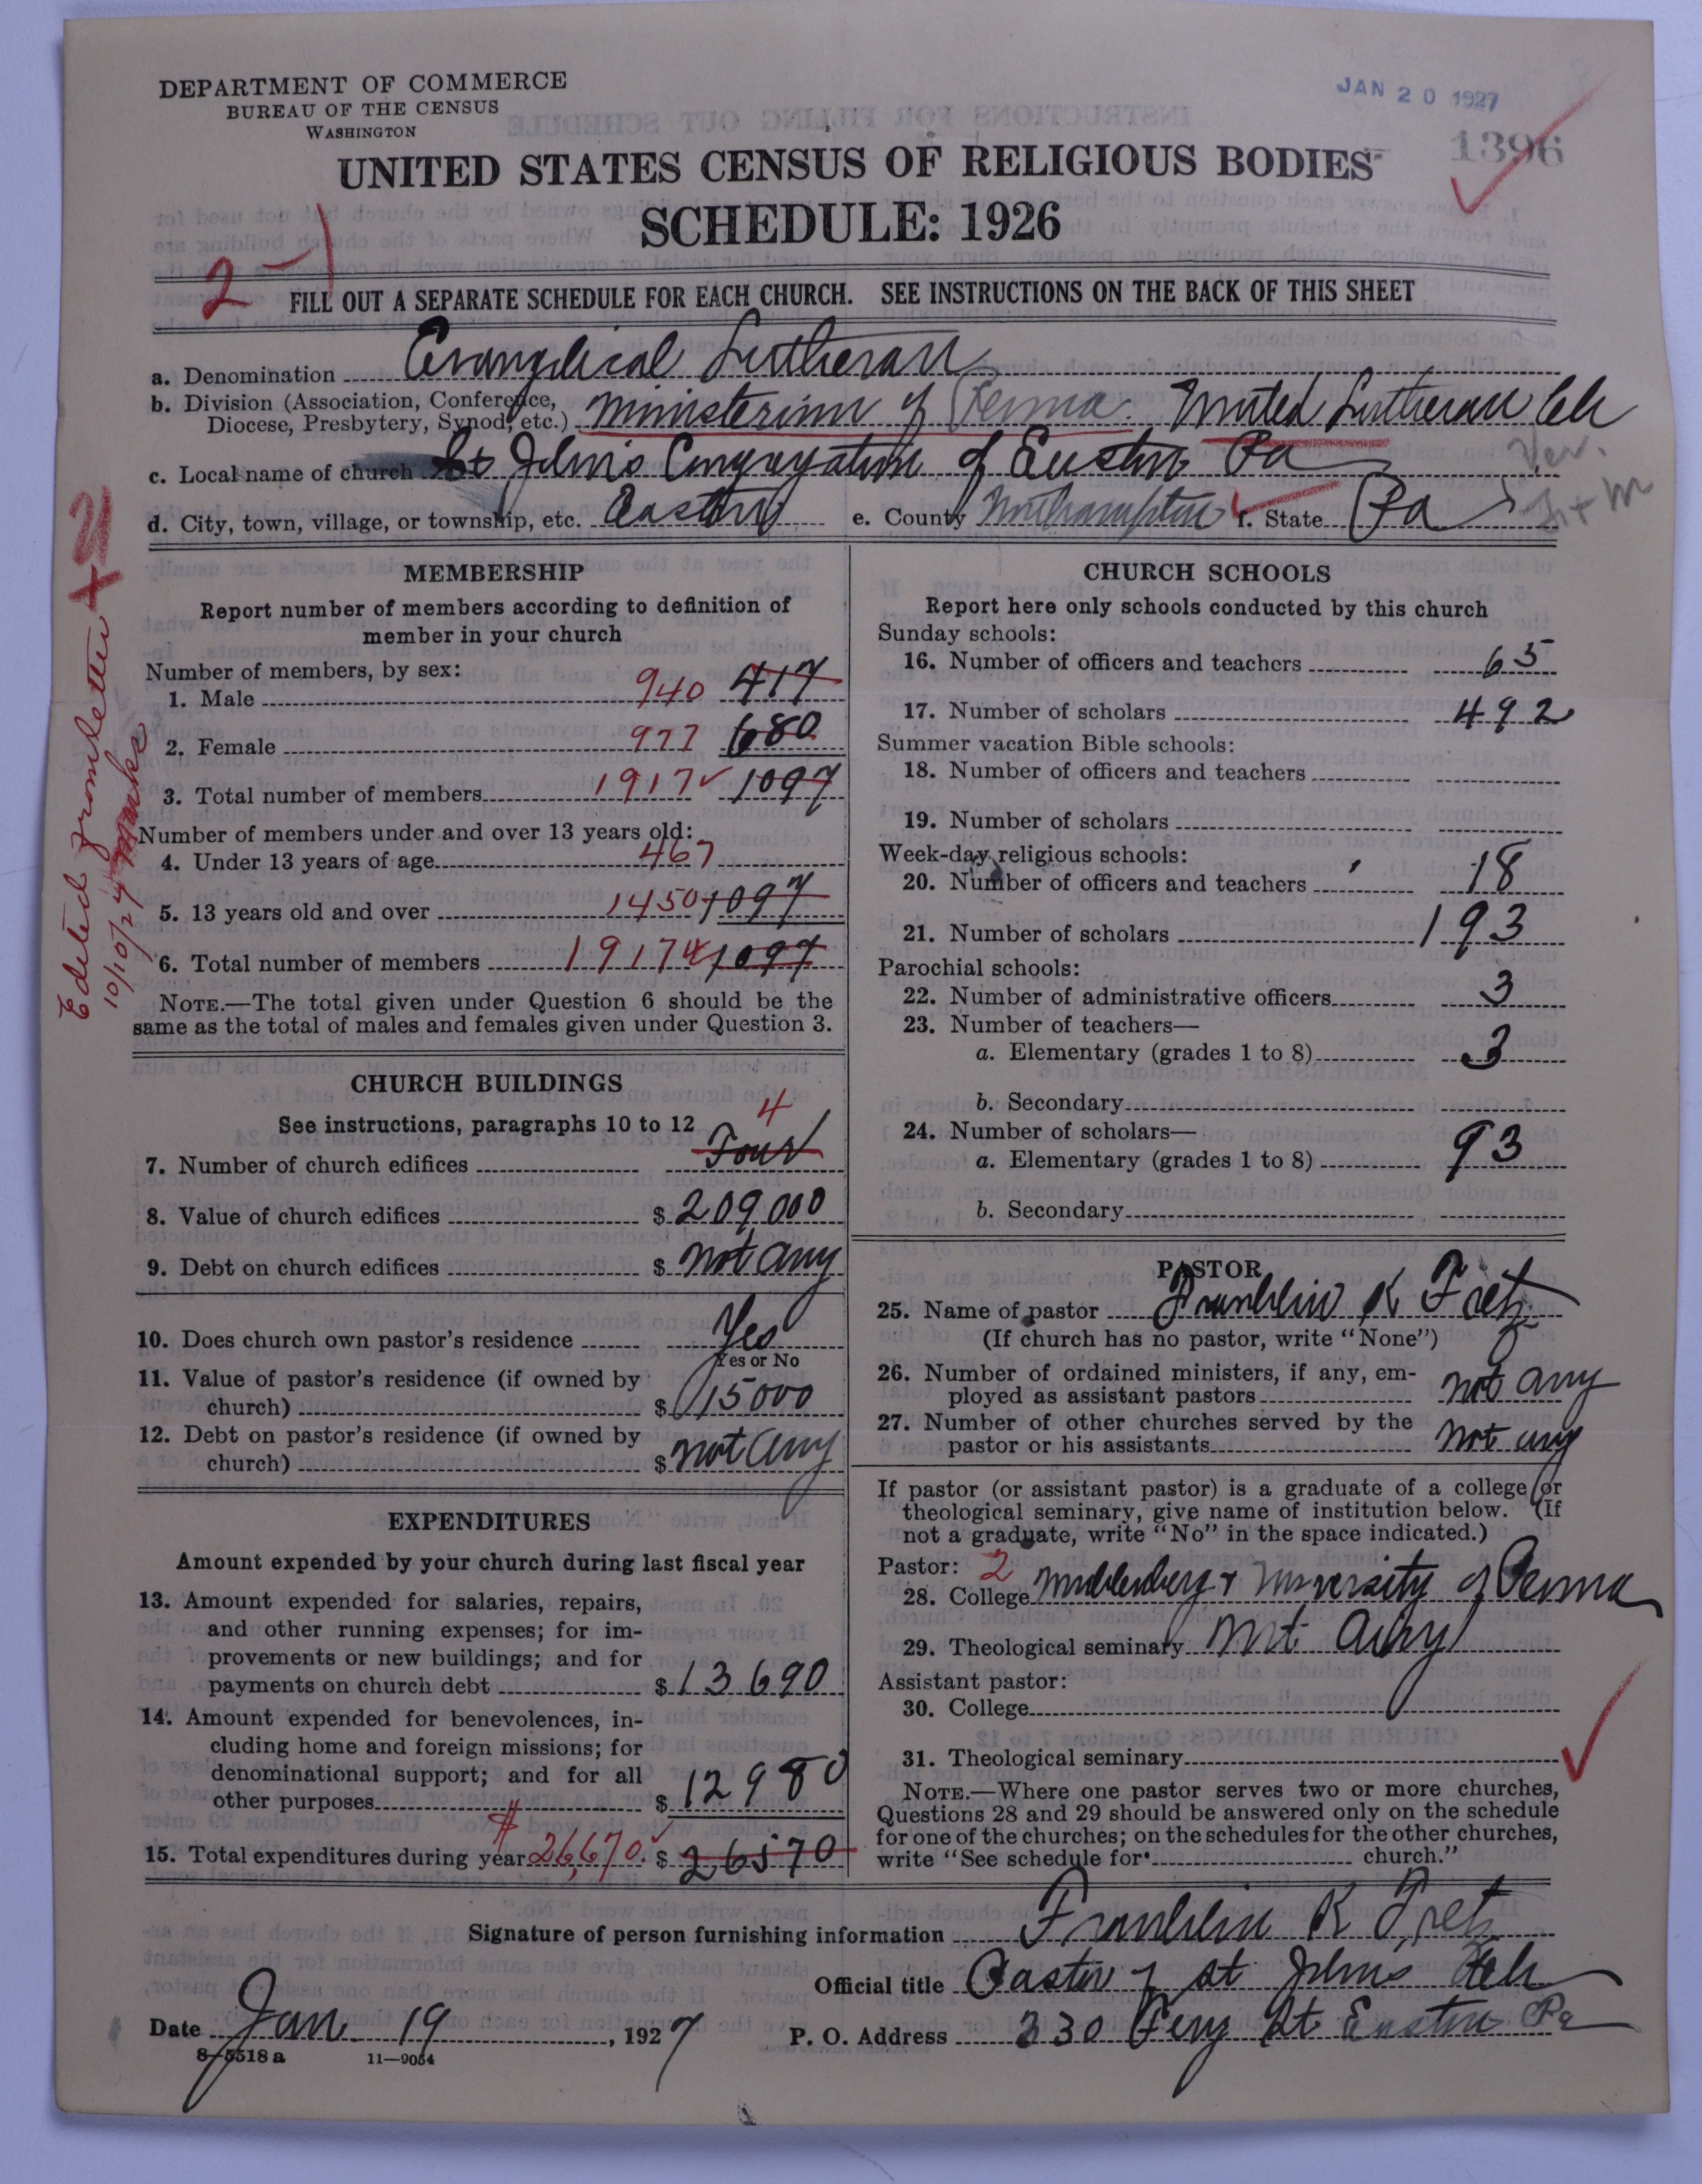 DEPARTMENT OF COMMERCE
BUREAU OF THE CENSUS
WASHINGTON
JAN 20 1927
1396
UNITED STATES CENSUS OF RELIGIOUS BODIES
SCHEDULE: 1926
2-1
FILL OUT A SEPARATE SCHEDULE FOR EACH CHURCH. SEE INSTRUCTIONS ON THE BACK OF THIS SHEET
a. Denomination Evangelical Lutheran
b. Division (Association, Conference, Diocese, Presbytery, Synod, etc.) Ministerium of Penna. United Lutheran Ch
c. Local name of church St John's Congregation of Easton Pa
d. City, town, village, or township, etc. Easton e. County Northampton f. State Pa
Edited from letter
10/10/27 Marks
MEMBERSHIP
Report number of members according to definition of
member in your church
Number of members, by sex:
1. Male 940 417
2. Female 977 680
3. Total number of members 1917 1097
Number of members under and over 13 years old:
4. Under 13 years of age 467
5. 13 years old and over 1450 1097
6. Total number of members 1917 1097
NOTE.—The total given under Question 6 should be the
same as the total of males and females given under Question 3.
CHURCH BUILDINGS
See instructions, paragraphs 10 to 12
7. Number of church edifices 4 Four
8. Value of church edifices $ 209000
9. Debt on church edifices $ not any
10. Does church own pastor's residence Yes
Yes or No
11. Value of pastor's residence (if owned by
church) $ 15000
12. Debt on pastor's residence (if owned by
church) $ not any
EXPENDITURES
Amount expended by your church during last fiscal year
13. Amount expended for salaries, repairs,
and other running expenses; for im-
provements or new buildings; and for
payments on church debt $ 13690
14. Amount expended for benevolences, in-
cluding home and foreign missions; for
denominational support; and for all
other purposes $ 12980
15. Total expenditures during year $26,670. $ 26570
CHURCH SCHOOLS
Report here only schools conducted by this church
Sunday schools:
16. Number of officers and teachers 65
17. Number of scholars 492
Summer vacation Bible schools:
18. Number of officers and teachers
19. Number of scholars
Week-day religious schools:
20. Number of officers and teachers 18
21. Number of scholars 193
Parochial schools:
22. Number of administrative officers 3
23. Number of teachers—
a. Elementary (grades 1 to 8) 3
b. Secondary
24. Number of scholars—
a. Elementary (grades 1 to 8) 93
b. Secondary
PASTOR
25. Name of pastor Franklin K Fretz
(If church has no pastor, write "None")
26. Number of ordained ministers, if any, em-
ployed as assistant pastors not any
27. Number of other churches served by the
pastor or his assistants not any
If pastor (or assistant pastor) is a graduate of a college or
theological seminary, give name of institution below. (If
not a graduate, write "No" in the space indicated.)
Pastor: 2
28. College Muhlenberg + University of Penna
29. Theological seminary Mt Airy
Assistant pastor:
30. College
31. Theological seminary
NOTE.—Where one pastor serves two or more churches,
Questions 28 and 29 should be answered only on the schedule
for one of the churches; on the schedules for the other churches,
write "See schedule for church."
Signature of person furnishing information Franklin K Fretz
Official title Pastor of St Johns Ch
Date Jan 19, 1927 P. O. Address 330 Ferry St Easton Pa
8-5518 a 11-9054